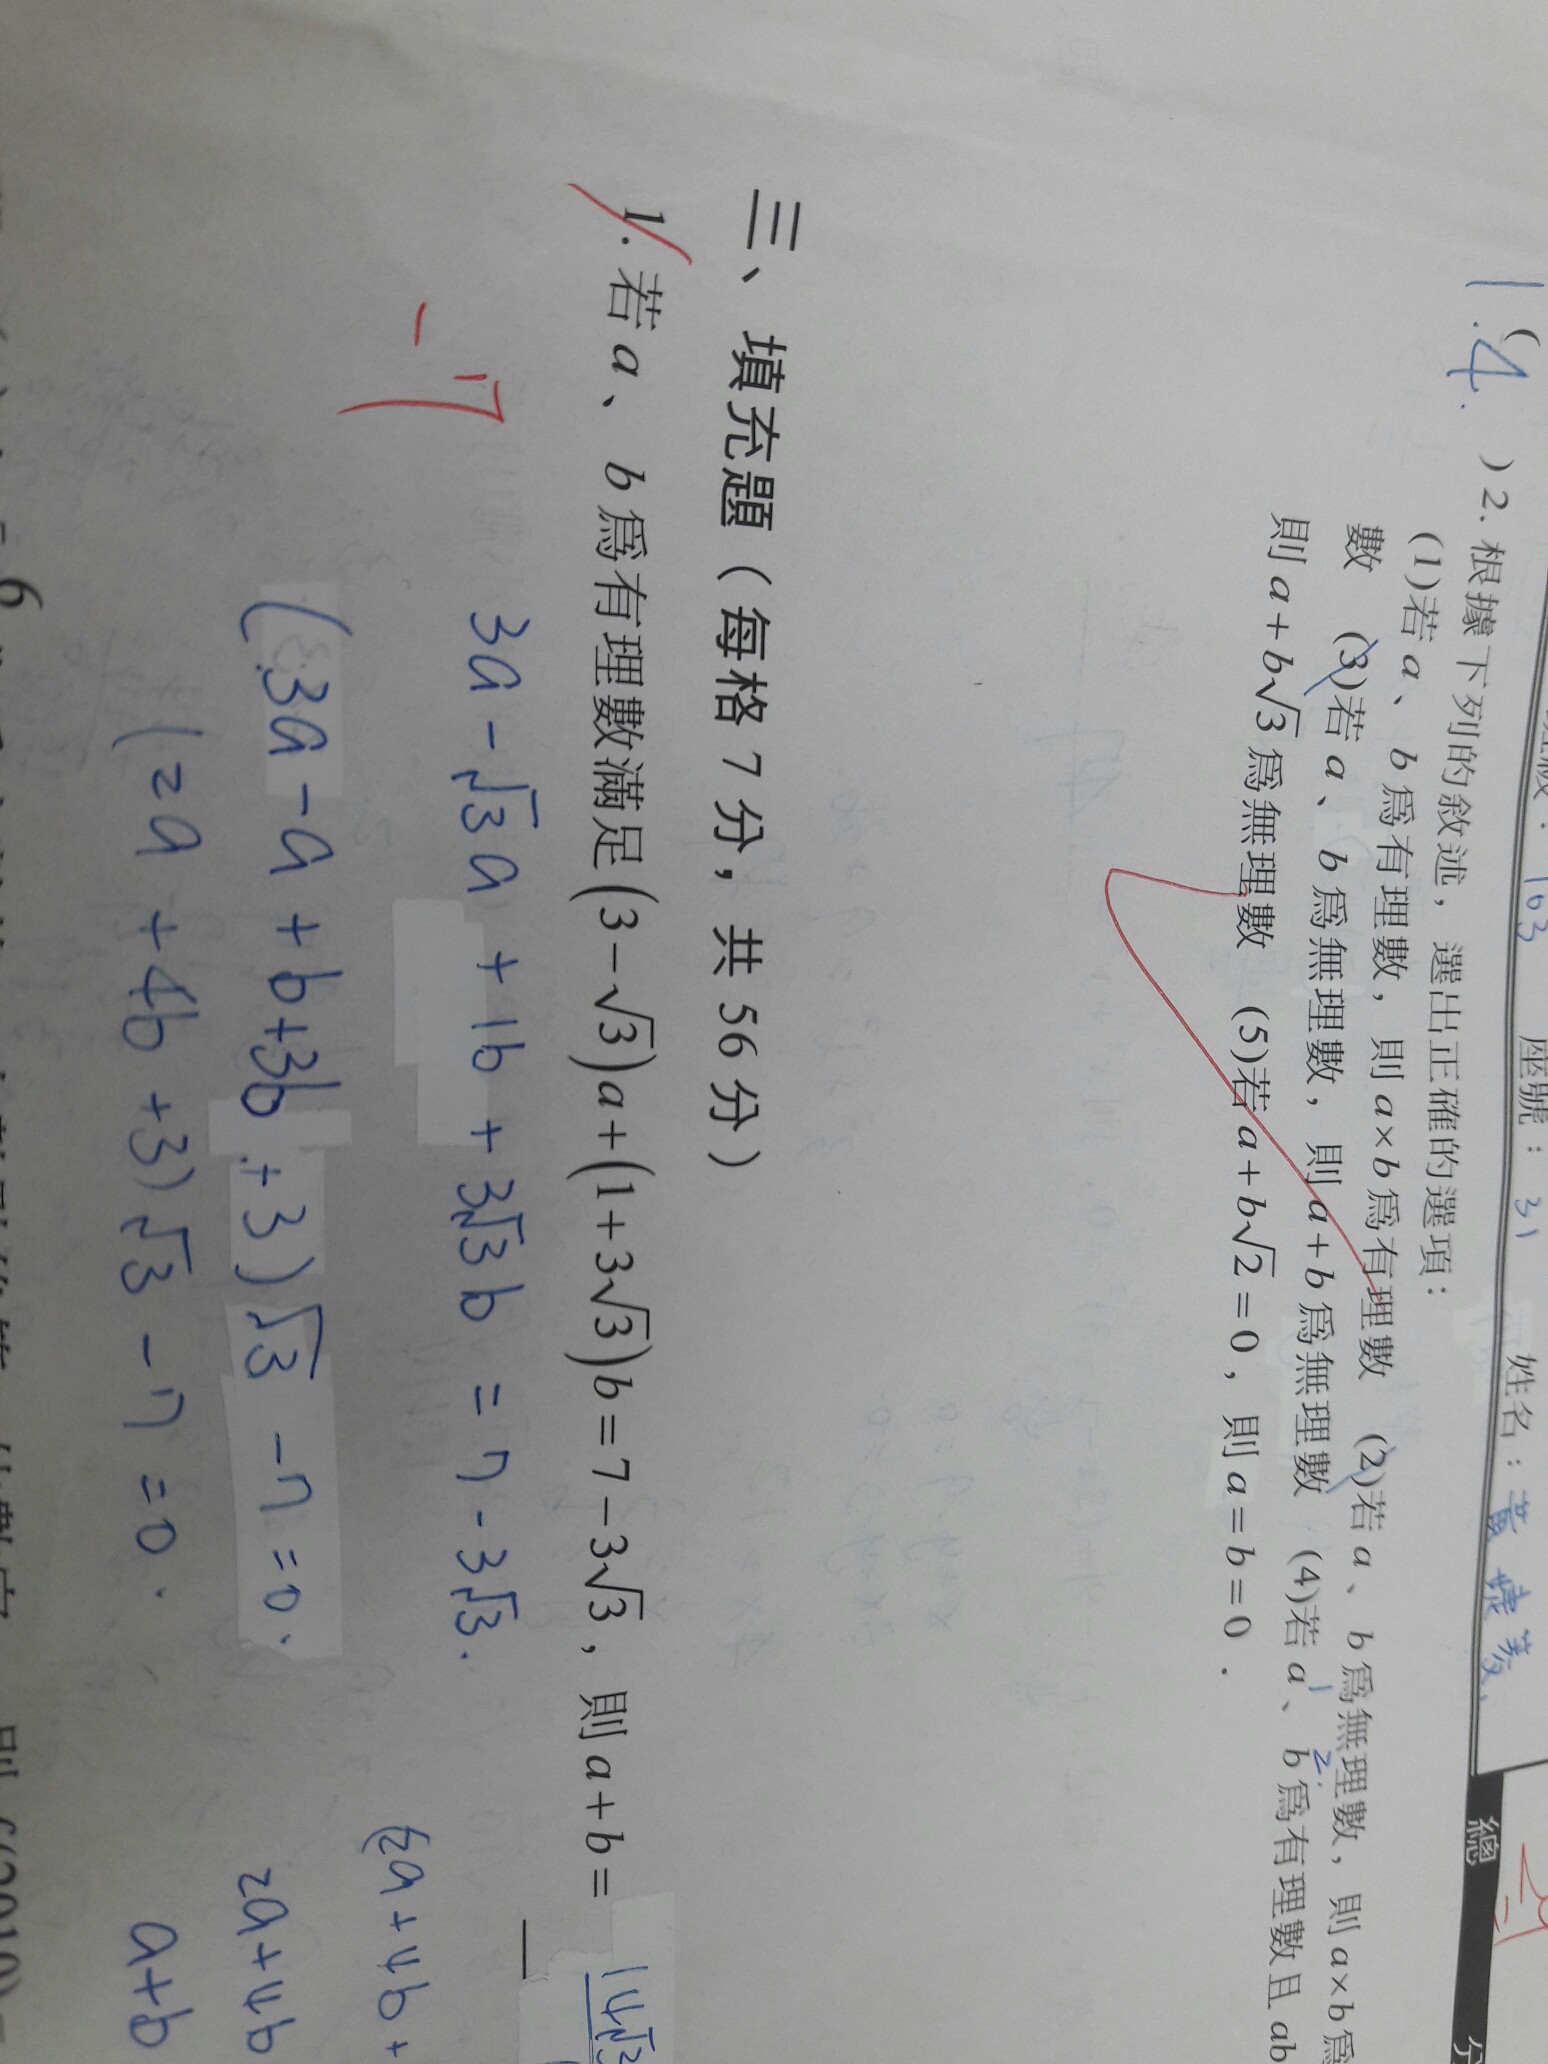 班級：103 座號：31 姓名：黃
總 分
1.4. )2.根據下列的敘述，選出正確的選項：
(1)若a、b爲有理數，則a×b爲有理數 (2)若a、b爲無理數，則a×b爲
數 (3)若a、b爲無理數，則a+b爲無理數 (4)若a、b爲有理數且ab
1 2.
則a+b√3爲無理數 (5)若a+b√2=0，則a=b=0．
三、填充題（每格7分，共56分）
1.若a、b爲有理數滿足(3−√3)a+(1+3√3)b=7−3√3，則a+b= 14√3
-7
3a-√3a+1b+3√3b=7-3√3.
(3a-a+b+3b+3)√3-7=0.
(2a+4b+3)√3-7=0.
(2a+4b+
2a+4b
a+b